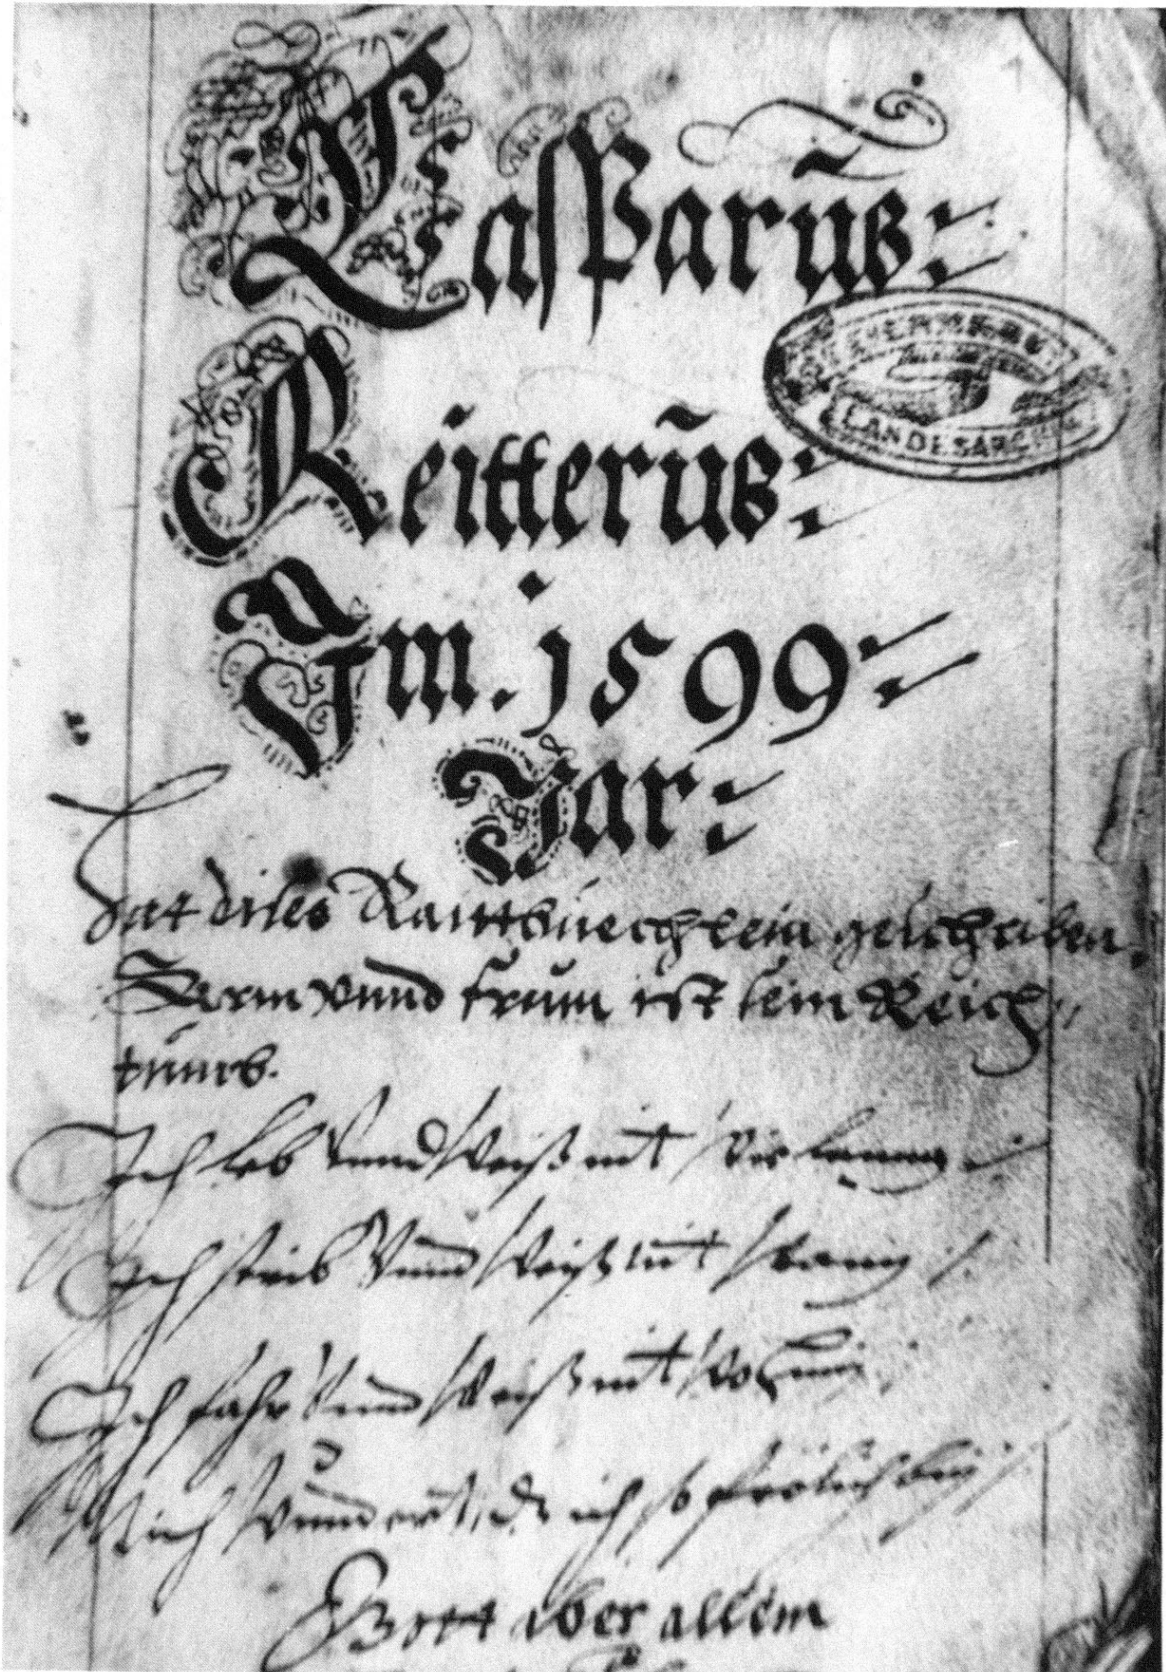 Casparūß
Reitterūß
Im. 1599
Jar
hat dises Raittbüechlein geschriben.
Arm vnnd frum ist sein Reich
tumb.
Ich leb vnnd weiß nit wie lanng
Ich stirb vnnd weiß nit wann
Ich fahr vnnd weiß nit wohin
Mich wundert, dz ich so frölich bin
Gott aber allem
LANDESARCHIV